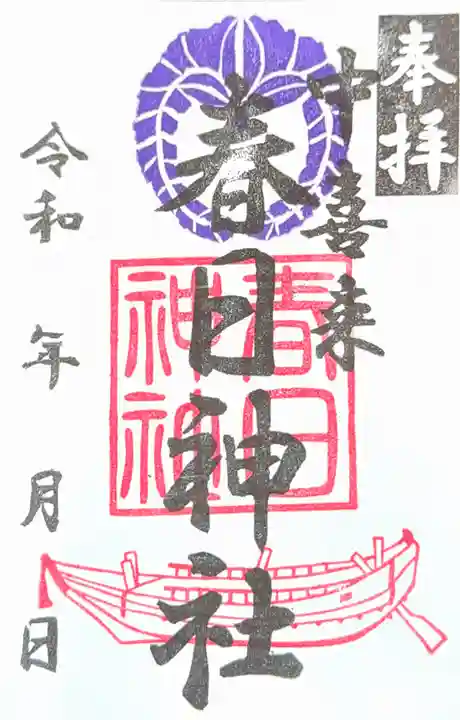 奉拝
中喜来
春日神社
春日
神社
令和 年 月 日